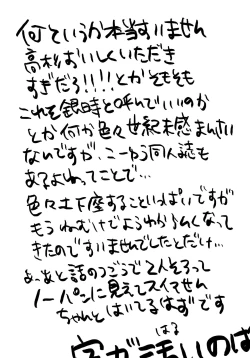 何というか本当すいません
高杉おいしくいただき
すぎだろ!!!!とかそもそも
これを銀時と呼んでいいのか
とか何か色々世紀末感まんたい
なんですが、こーゆう同人誌も
あるよねってことで…
色々土下座することいっぱいですが
もうねむけでようわからんくなって
きたのですいませんでしたとだけ…
あ、あと話のつごうで2人そろって
ノーパンに見えてスイマせん
ちゃんとはいてるはずです
はる
字が汚いのは